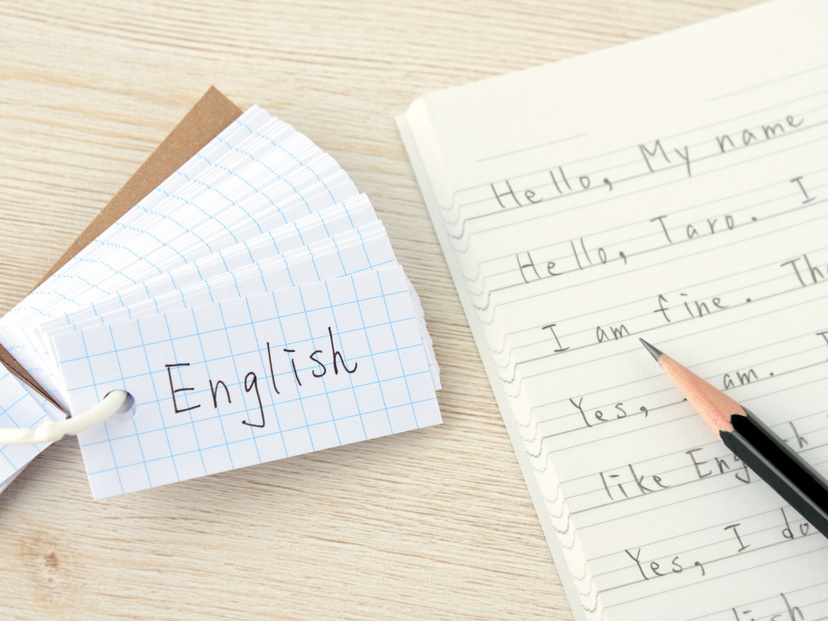 English
Hello, My name
Hello, Taro. I
I am fine. Tha
Yes, am. I
like English
Yes, I do
lish